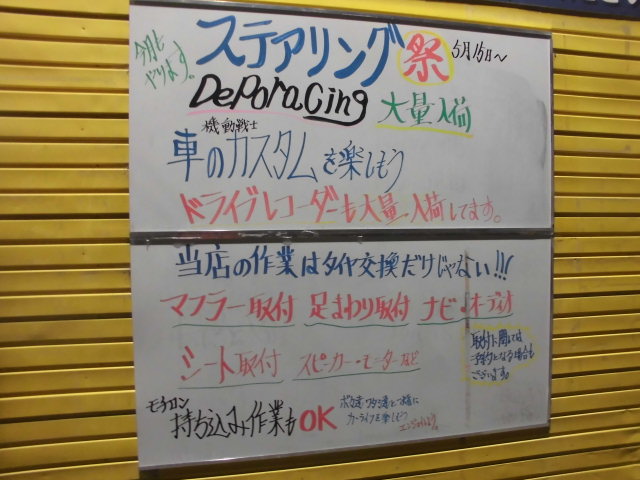 今月も
やります。
ステアリング祭 5月15日～
DePoRacing 大量入荷
機動戦士
車のカスタムを楽しもう
ドライブレコーダーも大量入荷してます。
当店の作業はタイヤ交換だけじゃない!!!
マフラー取付 足まわり取付 ナビ・オーディオ
シート取付 スピーカー・モニターなど
取付に関しては
予約になる場合も
ございます。
モチロン
持ち込み作業もOK
ボク達ワタシ達と一緒に
カーライフを楽しもう